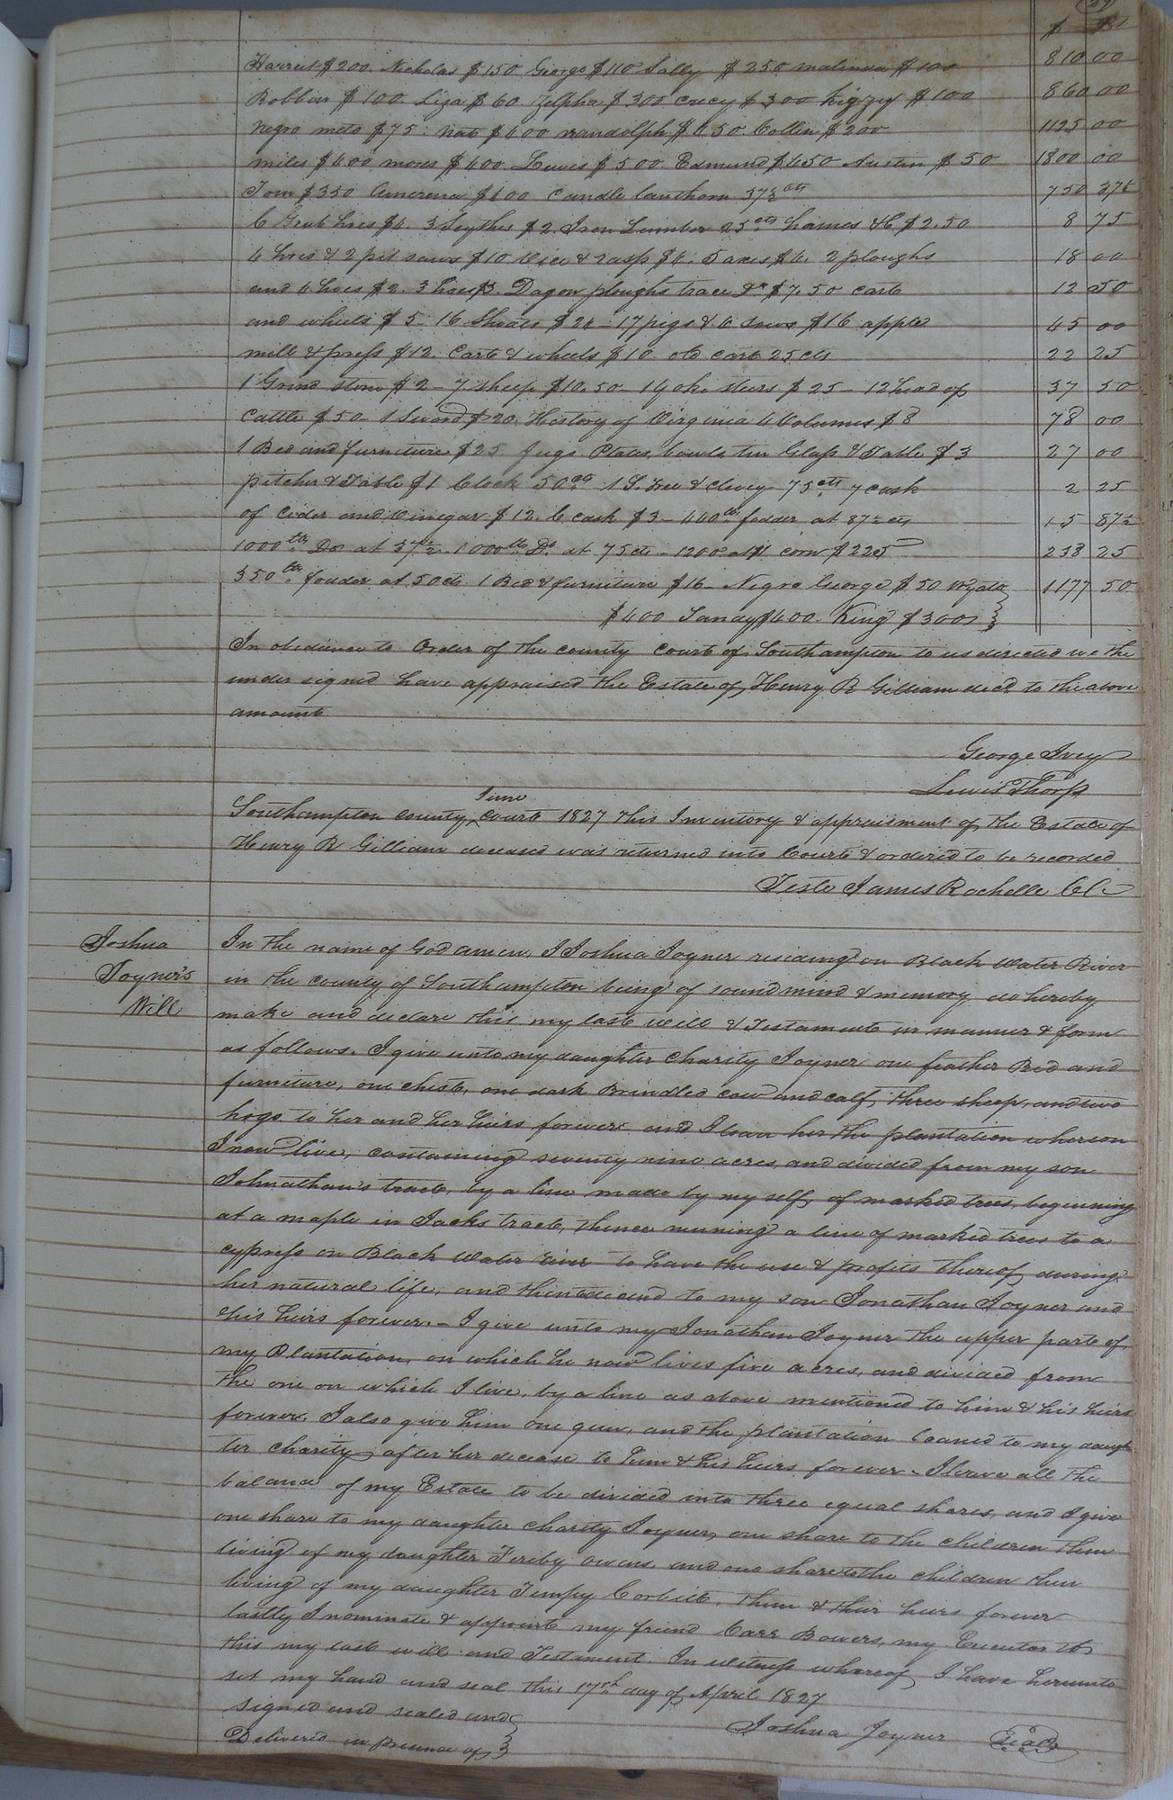 $ cts
Harriet $200. Nicholas $150 George $110 Sally $250 malinda $100 810 00
Robbin $100. Liza $60. Zelpha $300 $300 $100 860 00
negro meto $75. nat $400 randolph $450 Collin $200 1125 00
miles $400 moses $400 Lewis $500 Edmund $450 Austin $50 1800 00
Tom $350 America $400 Candle lanthorn 37½ cts 750 37½
6 Grub hoes $4. 3 Scythes $2. Iron Lumber 25 cts hames &C $2.50 8 75
4 hoes & 2 pit saws $10 Vice & rasp $4. 5 axes $4. 2 ploughs 18 00
and 4 hoes $2. 3 hoes $3. Dagon ploughs trace &c $7.50 cart 12 50
and wheels $5. 16 Shoats $24 - 17 pigs & 6 sows $16 apple 45 00
mill & press $12. Cart & wheels $10 old cart 25 cts 22 25
1 Grind stone $2 - 7 sheep $10.50 1 yoke steers $25 - 12 head of 37 50
Cattle $50. 1 Sword $20. History of Virginia 4 Volumes $8 78 00
1 Bed and furniture $25 Jugs Plates bowls tin Glass & Table $3 27 00
pitcher & Table $1 Clock 50 cts 1 75 cts 7 cask 2 25
of Cider and Vinegar $12. 6 cask $3 - 440 lb fodder at 87½ cts 15 87½
1000 lb Do at 37½ - 1000 lb Do at 75 cts - 1200 at $1 corn $225 233 25
350 lb fodder at 50 cts. 1 Bed & furniture $16 - Negro George $50 Wyatt 1177 50
$400 Sandy $400. King $300
In obedience to Order of the County Court of Southampton to us directed we the
under signed have appraised the Estate of Henry R Gilliam decd to the above
amount
George Ivey
Lewis Thorp
Southampton County June Court 1827 This Inventory & appraisment of the Estate of
Henry R Gilliam deceased was returned into Court & ordered to be recorded
Teste James Rochelle CC
Joshua
Joyner's
Will
In the name of God amen, I Joshua Joyner residing on Black Water River
in the County of Southampton being of sound mind & memory do hereby
make and declare this my last will & Testament in manner & form
as follows. I give unto my daughter Charity Joyner one feather Bed and
furniture, one chest, one dark Brindled cow and calf, three sheep, and two
hogs to her and her heirs forever and I loan her the plantation whereon
I now live, containing seventy nine acres, and divided from my son
Johnathan's tract, by a line made by my self, of marked trees, beginning
at a maple in Jacks tract, thence running a line of marked trees to a
cypress on Black Water river to have the use & profits thereof during
her natural life, and then to decend to my son Jonathan Joyner and
his heirs forever. - I give unto my Jonathan Joyner the upper part of
my Plantation, on which he now lives five acres, and divided from
the one on which I live, by a line as above mentioned to him & his heirs
forever. I also give him one gun, and the plantation loaned to my daugh
ter Charity, after her decease to him & his heirs forever. I leave all the
balance of my Estate to be divided into three equal shares, and I give
one share to my daughter Charity Joyner, one share to the children then
living of my daughter Fereby Owens, and one share to the children then
living of my daughter Tempy Corbitt, them & their heirs forever
lastly I nominate & appoint my friend Carr Bowers, my Executor to
this my last will and Testament. In witness whereof I have hereunto
set my hand and seal this 17th day of April 1827
signed and sealed and
Delivered in presence of
Joshua Joyner Seal